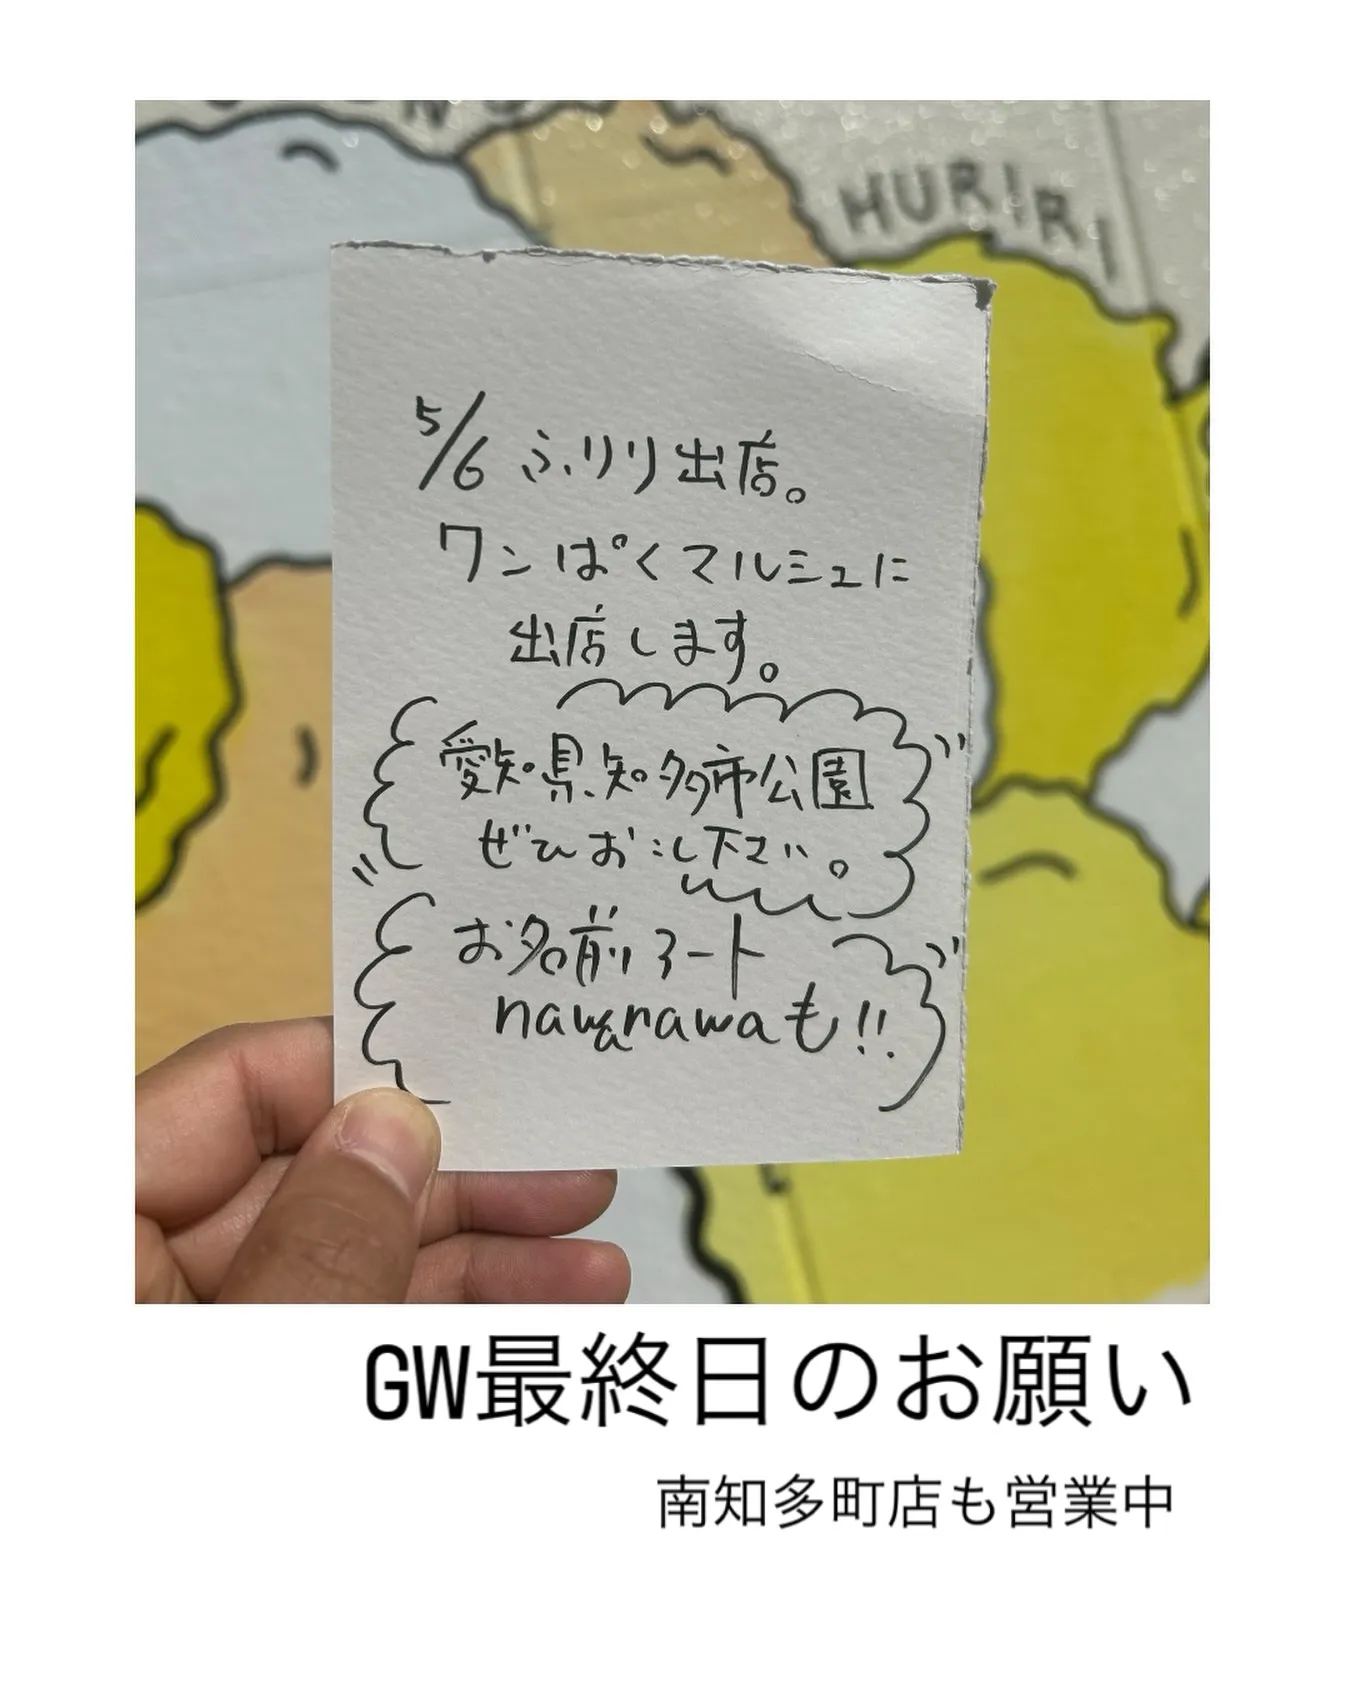 HURIRI
5/6 ふりり出店。
ワンぱくマルシェに
出店します。
愛知県知多市公園
ぜひお越し下さい。
お名前アート
nawanawaも!!
GW最終日のお願い
南知多町店も営業中